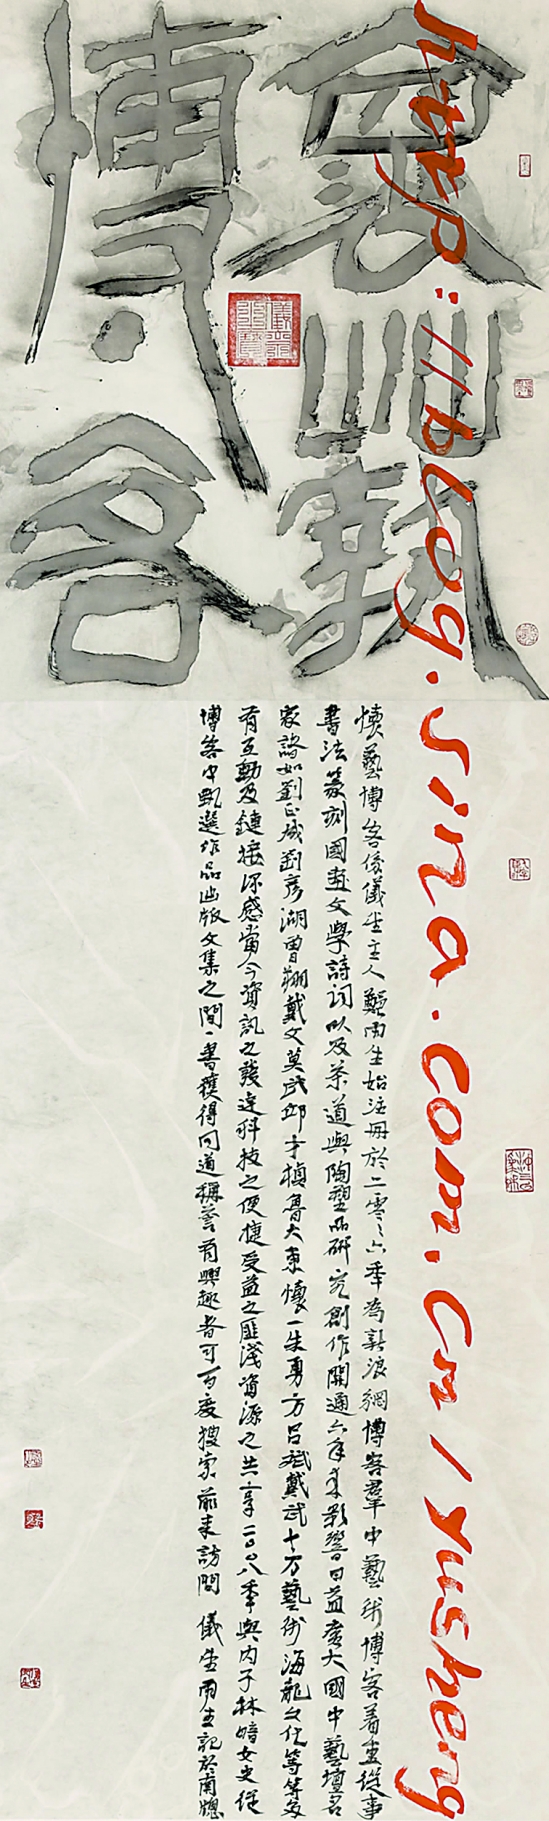 http://blog.sina.com.cn/yusheng
博客
藝博客係儀生主人雨生始注冊於二零零六年為新浪網博客羣中藝術博客着重從事
書法篆刻國畫文學詩詞以及茶道與陶塑品研究創作開通六年來影響日益廣大國中藝壇名
家諸如劉正成劉彥湖曾翔戴文莫武邱才楨魯大東懷一朱勇方呂斌戴武十方藝術海龍文化等等多
有互動及鏈接深感當今資訊之發達科技之便捷受益之匪淺資源之共享二〇〇八年與內子林暗女史從
博客中甄選作品出版文集之間一書獲得同道稱譽有興趣者可百度搜索前來訪問 儀生雨生記於南窗